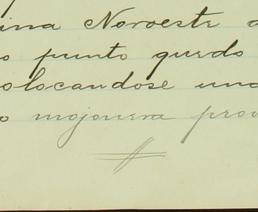 ina Noroeste d
o punto quedo
olocandose una
o mojonera prov